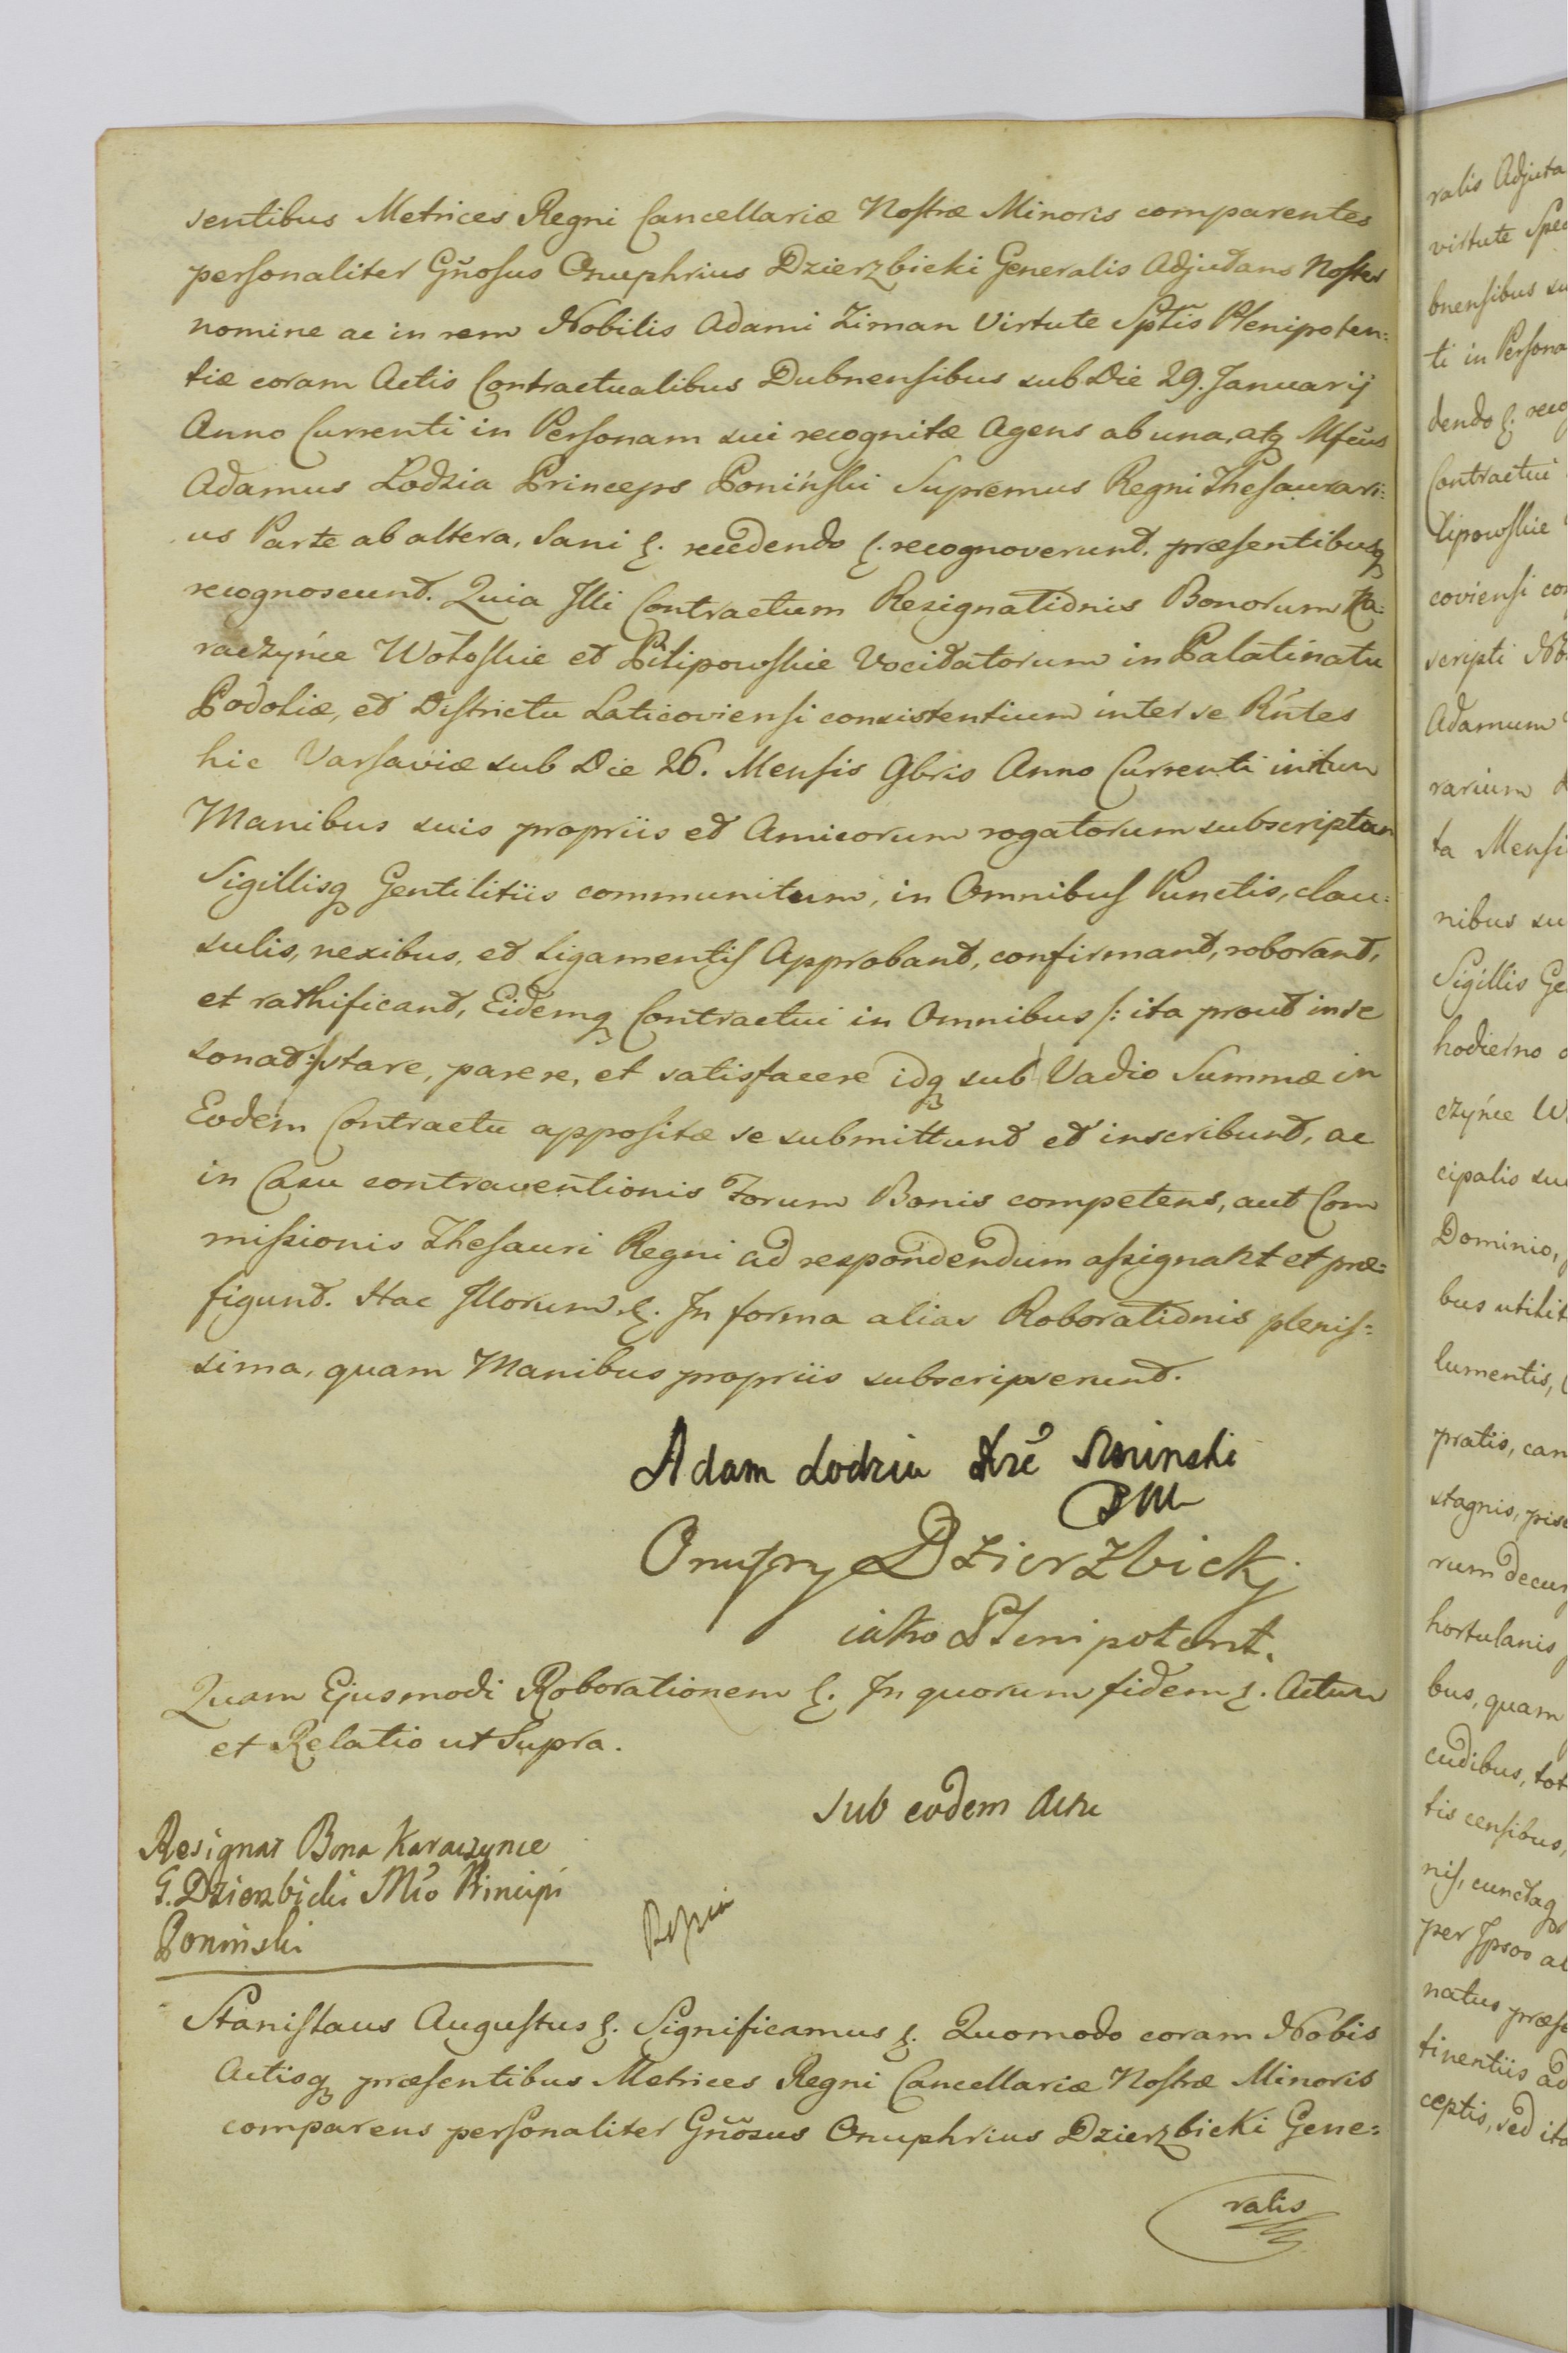 sentibus Metrices Regni Cancellariæ Nostræ Minoris comparentes
personaliter Gñosus Onuphrius Dzierzbicki Generalis Adjutans Noster
nomine ac in rem Nobilis Adami Ziman Virtute Sptis Plenipoten:
tiæ coram Actis Contractualibus Dubnensibus sub Die 29. Januarij
Anno Currenti in Personam sui recognitæ Agens ab una, atq Mfcus
Adamus Lodzia Princeps Poniński Supremus Regni Thesaurari:
us Parte ab altera, Sani &. recedendo &. recognoverunt. præsentibusq
recognoscunt. Quia Illi Contractum Resignationis Bonorum Ka:
raczyńce Wołoskie et Pilipowskie Vocitatorum in Palatinatu
Podoliæ, et Districtu Laticoviensi consistentium inter se Rńtes
hic Varsaviæ sub Die 26. Mensis 9bris Anno Currenti initum
Manibus suis propriis et Amicorum rogatorum subscriptum
Sigillisq Gentilitiis communitum, in Omnibus Punctis, clau:
sulis, nexibus, et Ligamentis Approbant, confirmant, roborant,
et rathificant, Eidemq Contractui in Omnibus /: ita prout in se
sonat :/ stare, parere, et satisfacere idq sub Vadio Summæ in
Eodem Contractu appositæ se submittunt et inscribunt, ac
in Casu contraventionis Forum Bonis competens, aut Com
missionis Thesauri Regni ad respondendum assignant et præ:
figunt. Hac Illorum &. In forma alias Roborationis plenis:
sima, quam Manibus propriis subscripserunt.
Adam Lodzia Xże Poninski
PWK
Onufry Dzierzbickj
iako Plenipotent.
Quam Ejusmodi Roborationem &. In quorum fidem &. Actum
et Relatio ut Supra.
Sub eodem Actu
Resignat Bona Karaczynce
G. Dzierzbicki Mco Principi
Poninski
Stanislaus Augustus &. Significamus &. Quomodo coram Nobis
Actisq præsentibus Metrices Regni Cancellariæ Nostræ Minoris
comparens personaliter Gñosus Onuphrius Dzierzbicki Gene:
ralis
ralis Adjuta
virtute Spec
bnensibus su
ti in Persona
dendo &. reco
Contractui
lipowskie
coviensi con
scripti No
Adamum
rarium
ta Mensi
nibus su
Sigillis Ge
hodierno
czyńce W
cipalis su
Dominio,
bus utilit
lumentis,
pratis, cam
stagnis, pisc
rum decur
hortulanis
bus, quam
cudibus, tot
tis censibus,
nis, cunctaq
per Ipsos al
natus præse
tinentiis ad
ceptis, sed ita